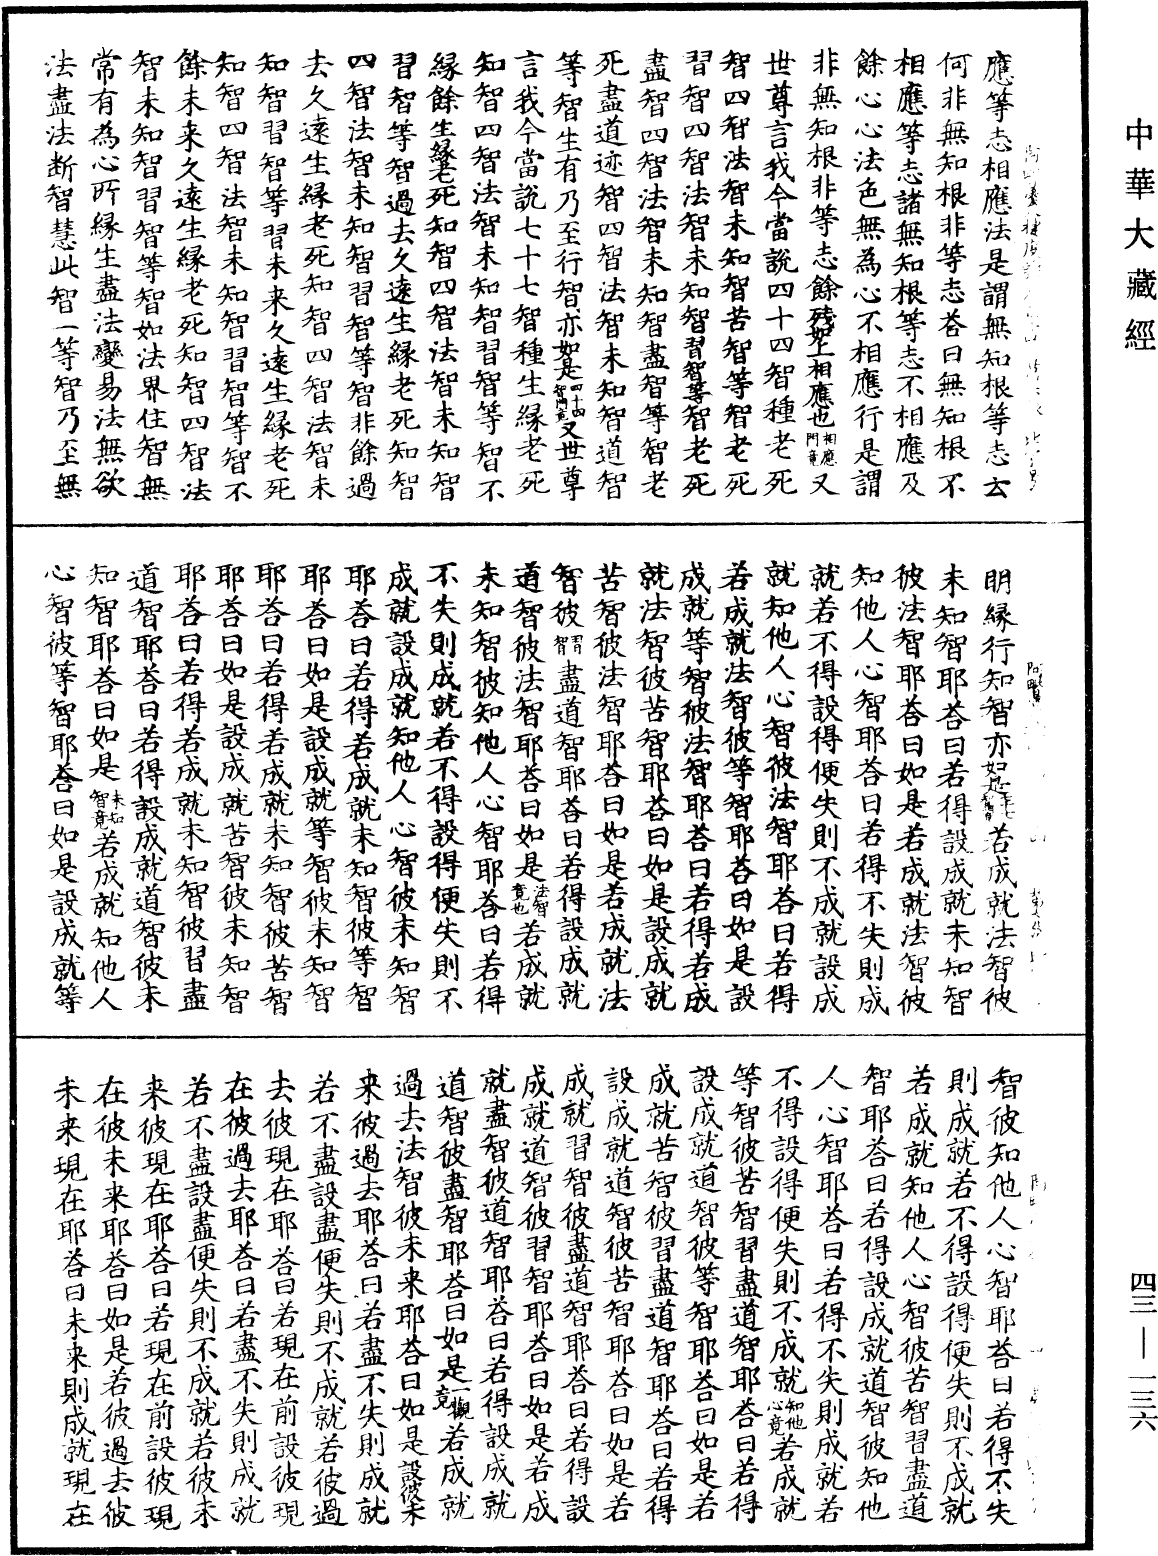 中華大藏經
應等志相應法是謂無知根等志云
何非無知根非等志荅曰無知根不
相應等志諸無知根等志不相應及
餘心心法色無為心不相應行是謂
非無知根非等志餘殘如上相應也相應門竟又
世尊言我今當說四十四智種老死
智四智法智未知智苦智等智老死
習智四智法智未知智習智等智老死
盡智四智法智未知智盡智等智老
死盡道迹智四智法智未知智道智
等智生有乃至行智亦如是四十四智門竟又世尊
言我今當說七十七智種生緣老死
知智四智法智未知智習智等智不
緣餘生緣老死知智四智法智未知智
習智等智過去久遠生緣老死知智
四智法智未知智習智等智非餘過
去久遠生緣老死知智四智法智未
知智習智等習未来久遠生緣老死
知智四智法智未知智習智等智不
餘未来久遠生緣老死知智四智法
智未知智習智等智如法界住智無
常有為心所緣生盡法變易法無欲
法盡法断智慧此智一等智乃至無
明緣行知智亦如是若成就法智彼
未知智耶荅曰若得設成就未知智
彼法智耶荅曰如是若成就法智彼
知他人心智耶荅曰若得不失則成
就若不得設得便失則不成就設成
就知他人心智彼法智耶荅曰若得
若成就法智彼等智耶荅曰如是設
成就等智彼法智耶荅曰若得若成
就法智彼苦智耶荅曰如是設成就
苦智彼法智耶荅曰如是若成就法
智彼習智盡道智耶荅曰若得設成就
道智彼法智耶荅曰如是法智竟也若成就
未知智彼知他人心智耶荅曰若得
不失則成就若不得設得便失則不
成就設成就知他人心智彼未知智
耶荅曰若得若成就未知智彼等智
耶荅曰如是設成就等智彼未知智
耶荅曰若得若成就未知智彼苦智
耶荅曰如是設成就苦智彼未知智
耶荅曰若得若成就未知智彼習盡
道智耶荅曰若得設成就道智彼未
知智耶荅曰如是未知智竟若成就知他人
心智彼等智耶荅曰如是設成就等
智彼知他人心智耶荅曰若得不失
則成就若不得設得便失則不成就
若成就知他人心智彼苦智習盡道
智耶荅曰若得設成就道智彼知他
人心智耶荅曰若得不失則成就若
不得設得便失則不成就知他心竟若成就
等智彼苦智習盡道智耶荅曰若得
設成就道智彼等智耶荅曰如是若
成就苦智彼習盡道智耶荅曰若得
設成就道智彼苦智耶荅曰如是若
成就習智彼盡道智耶荅曰若得設
成就道智彼習智耶荅曰如是若成
就盡智彼道智耶荅曰若得設成就
道智彼盡智耶荅曰如是一觀竟若成就
過去法智彼未来耶荅曰如是設彼未
来彼過去耶荅曰若盡不失則成就
若不盡設盡便失則不成就若彼過
去彼現在耶荅曰若現在前設彼現
在彼過去耶荅曰若盡不失則成就
若不盡設盡便失則不成就若彼未
来彼現在耶荅曰若現在前設彼現
在彼未来耶荅曰如是若彼過去彼
未来現在耶荅曰未来則成就現在
四三—一三六